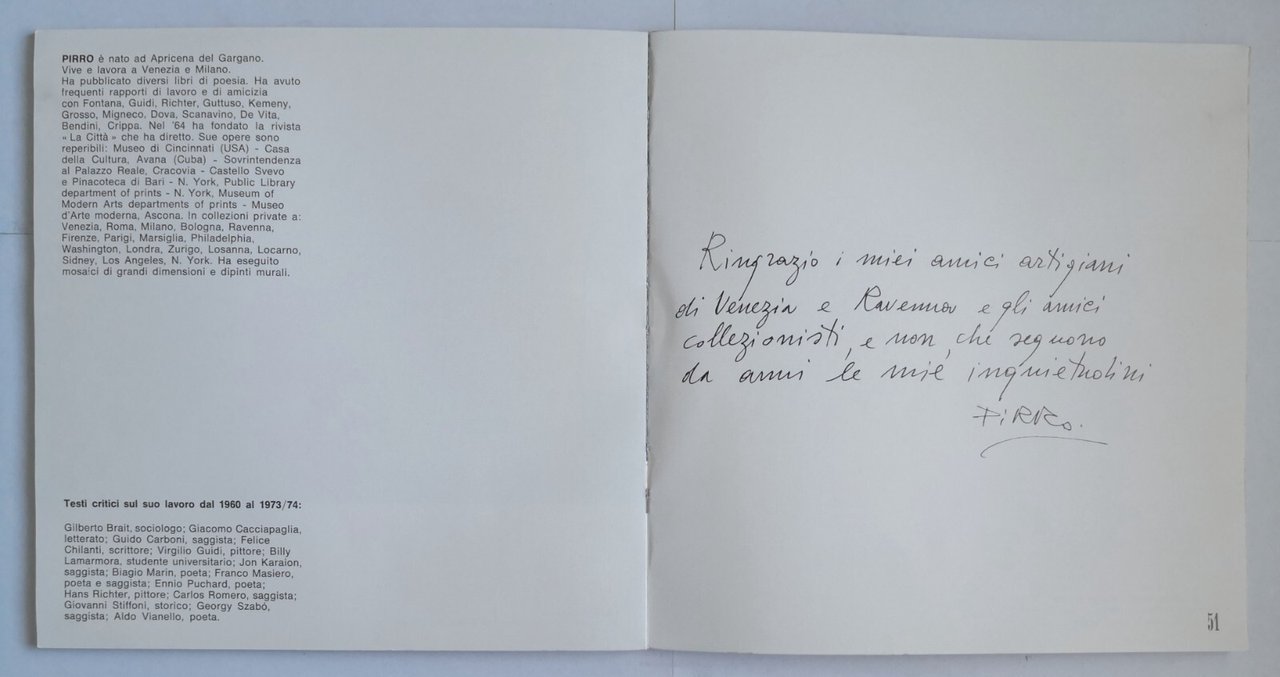 PIRRO è nato ad Apricena del Gargano.
Vive e lavora a Venezia e Milano.
Ha pubblicato diversi libri di poesia. Ha avuto
frequenti rapporti di lavoro e di amicizia
con Fontana, Guidi, Richter, Guttuso, Kemeny,
Grosso, Migneco, Dova, Scanavino, De Vita,
Bendini, Crippa. Nel '64 ha fondato la rivista
« La Città » che ha diretto. Sue opere sono
reperibili: Museo di Cincinnati (USA) - Casa
della Cultura, Avana (Cuba) - Sovrintendenza
al Palazzo Reale, Cracovia - Castello Svevo
e Pinacoteca di Bari - N. York, Public Library
department of prints - N. York, Museum of
Modern Arts departments of prints - Museo
d'Arte moderna, Ascona. In collezioni private a:
Venezia, Roma, Milano, Bologna, Ravenna,
Firenze, Parigi, Marsiglia, Philadelphia,
Washington, Londra, Zurigo, Losanna, Locarno,
Sidney, Los Angeles, N. York. Ha eseguito
mosaici di grandi dimensioni e dipinti murali.
Testi critici sul suo lavoro dal 1960 al 1973/74:
Gilberto Brait, sociologo; Giacomo Cacciapaglia,
letterato; Guido Carboni, saggista; Felice
Chilanti, scrittore; Virgilio Guidi, pittore; Billy
Lamarmora, studente universitario; Jon Karaion,
saggista; Biagio Marin, poeta; Franco Masiero,
poeta e saggista; Ennio Puchard, poeta;
Hans Richter, pittore; Carlos Romero, saggista;
Giovanni Stiffoni, storico; Georgy Szabó,
saggista; Aldo Vianello, poeta.
Ringrazio i miei amici artigiani
di Venezia e Ravenna e gli amici
collezionisti, e non, che seguono
da anni le mie inquietudini
PiRRo.
51